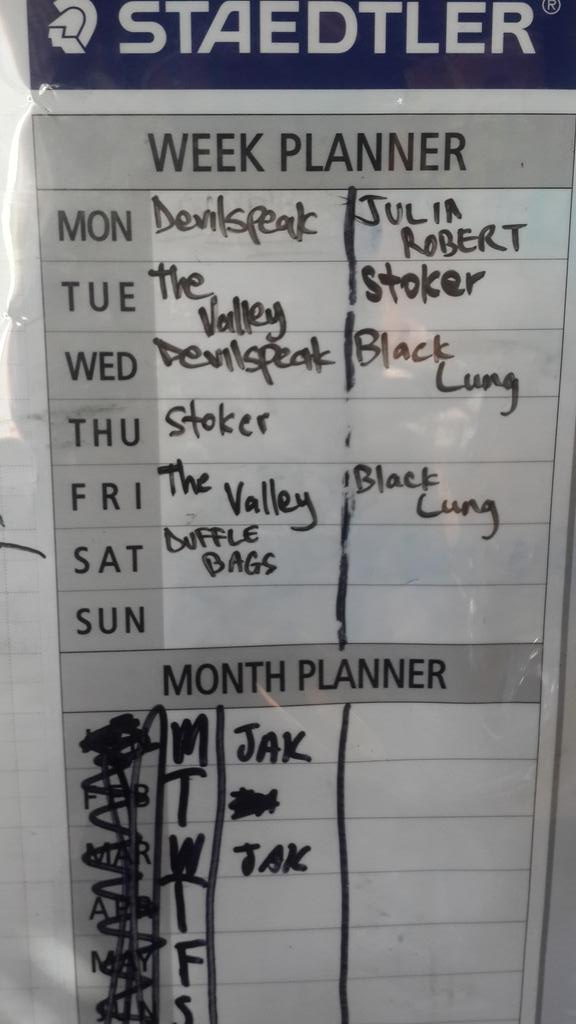 STAEDTLER®
WEEK PLANNER
MON Devilspeak JULIA
ROBERT
TUE The Stoker
Valley
WED Devilspeak Black
Lung
THU Stoker
FRI The Valley Black
Lung
SAT DUFFLE
BAGS
SUN
MONTH PLANNER
M JAK
FEB T
MAR W JAK
APR T
MAY F
JUN S